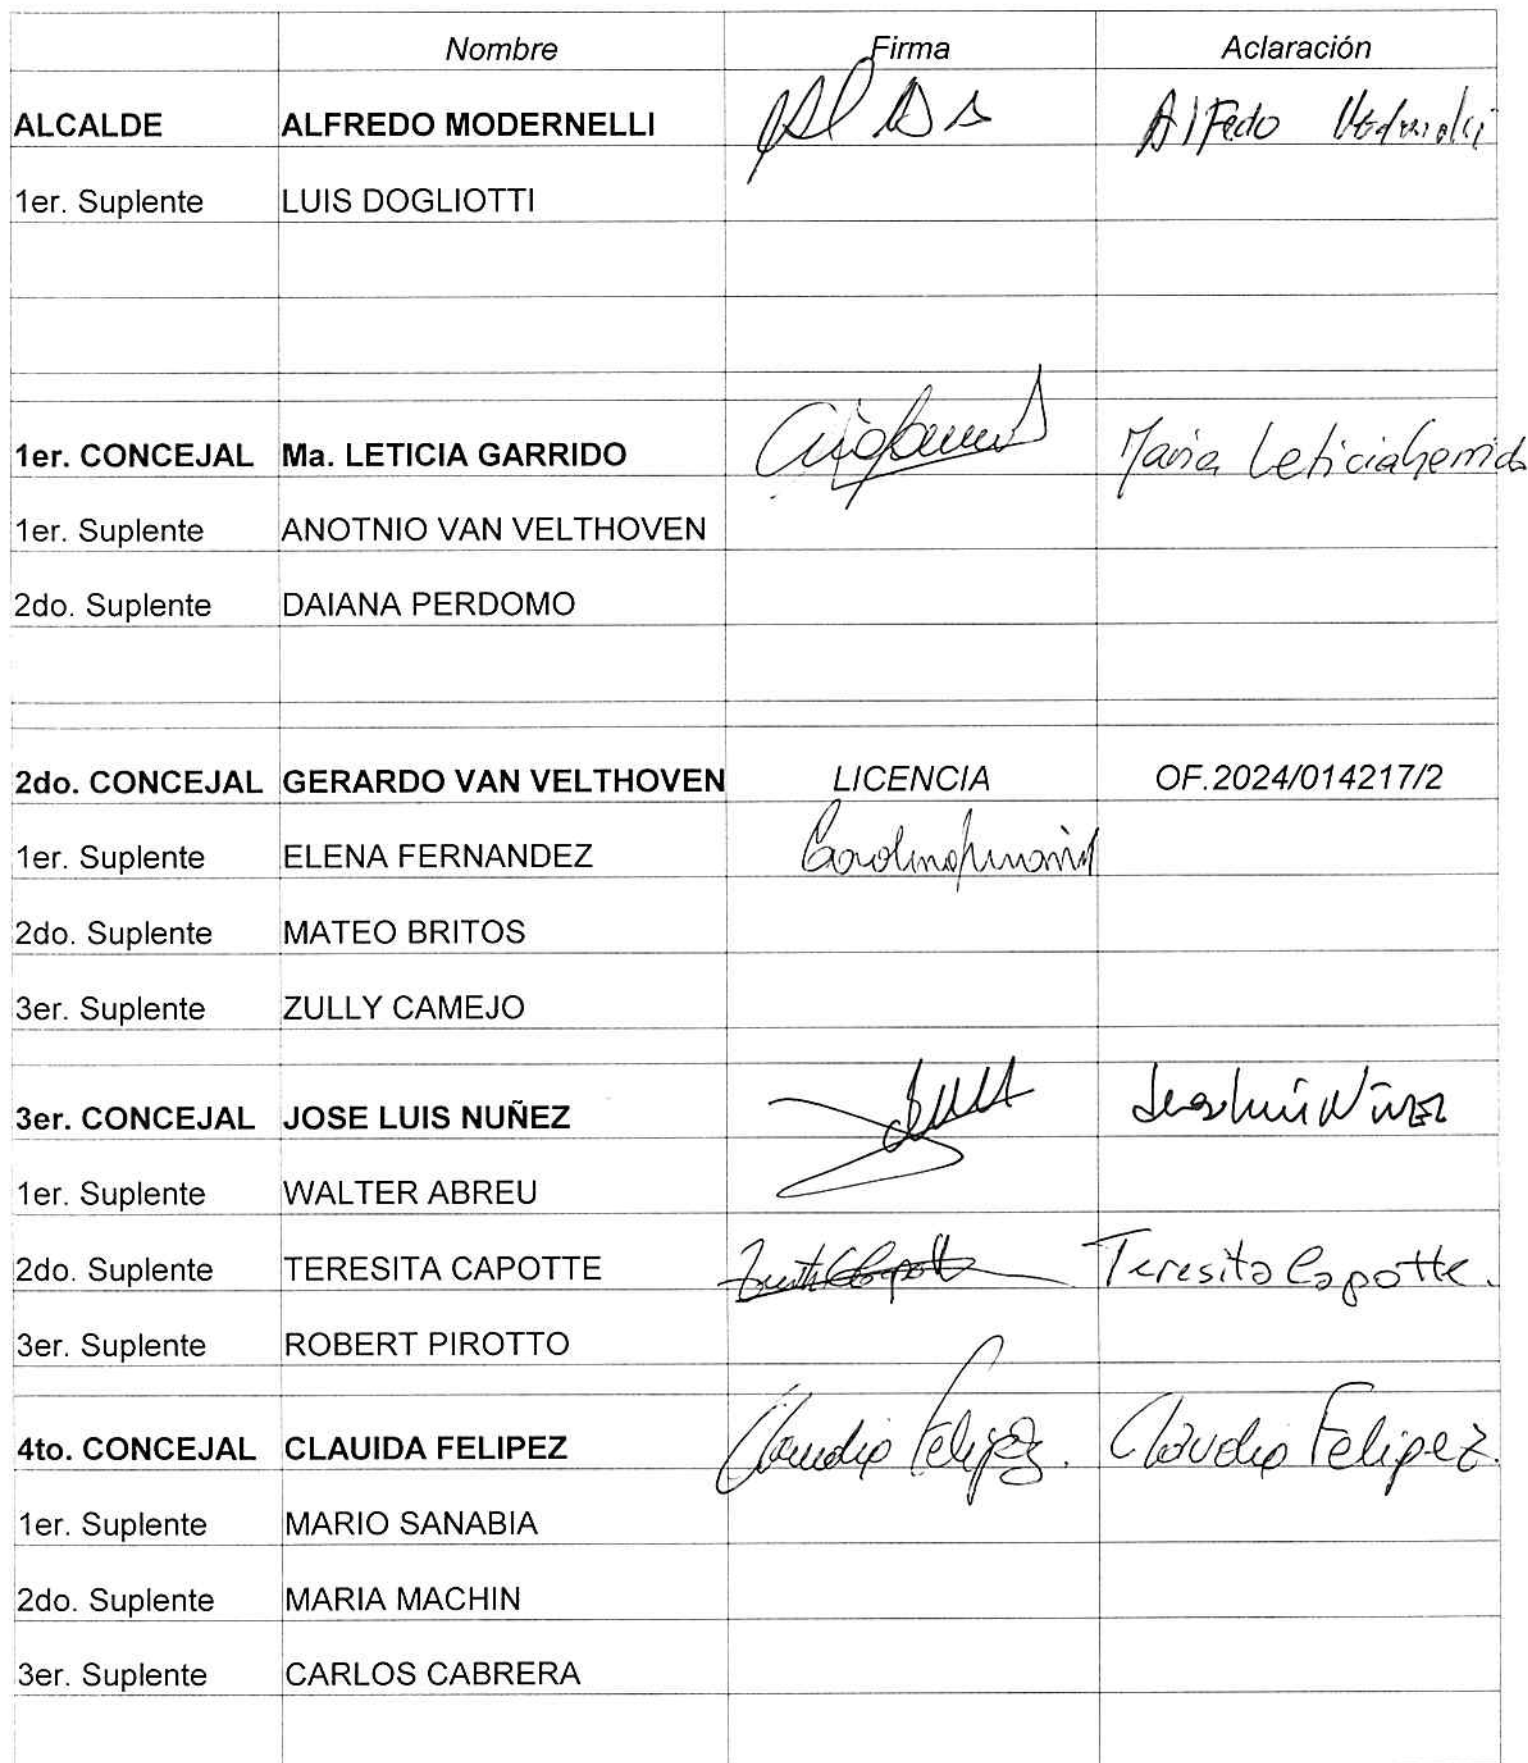 Nombre Firma Aclaración
ALCALDE ALFREDO MODERNELLI Alfedo
1er. Suplente LUIS DOGLIOTTI
1er. CONCEJAL Ma. LETICIA GARRIDO Maria Leticia Garrido
1er. Suplente ANOTNIO VAN VELTHOVEN
2do. Suplente DAIANA PERDOMO
2do. CONCEJAL GERARDO VAN VELTHOVEN LICENCIA OF.2024/014217/2
1er. Suplente ELENA FERNANDEZ
2do. Suplente MATEO BRITOS
3er. Suplente ZULLY CAMEJO
3er. CONCEJAL JOSE LUIS NUÑEZ Jose Luis Núñez
1er. Suplente WALTER ABREU
2do. Suplente TERESITA CAPOTTE Teresita Capotte.
3er. Suplente ROBERT PIROTTO
4to. CONCEJAL CLAUIDA FELIPEZ Claudia Felipez. Claudia Felipez.
1er. Suplente MARIO SANABIA
2do. Suplente MARIA MACHIN
3er. Suplente CARLOS CABRERA